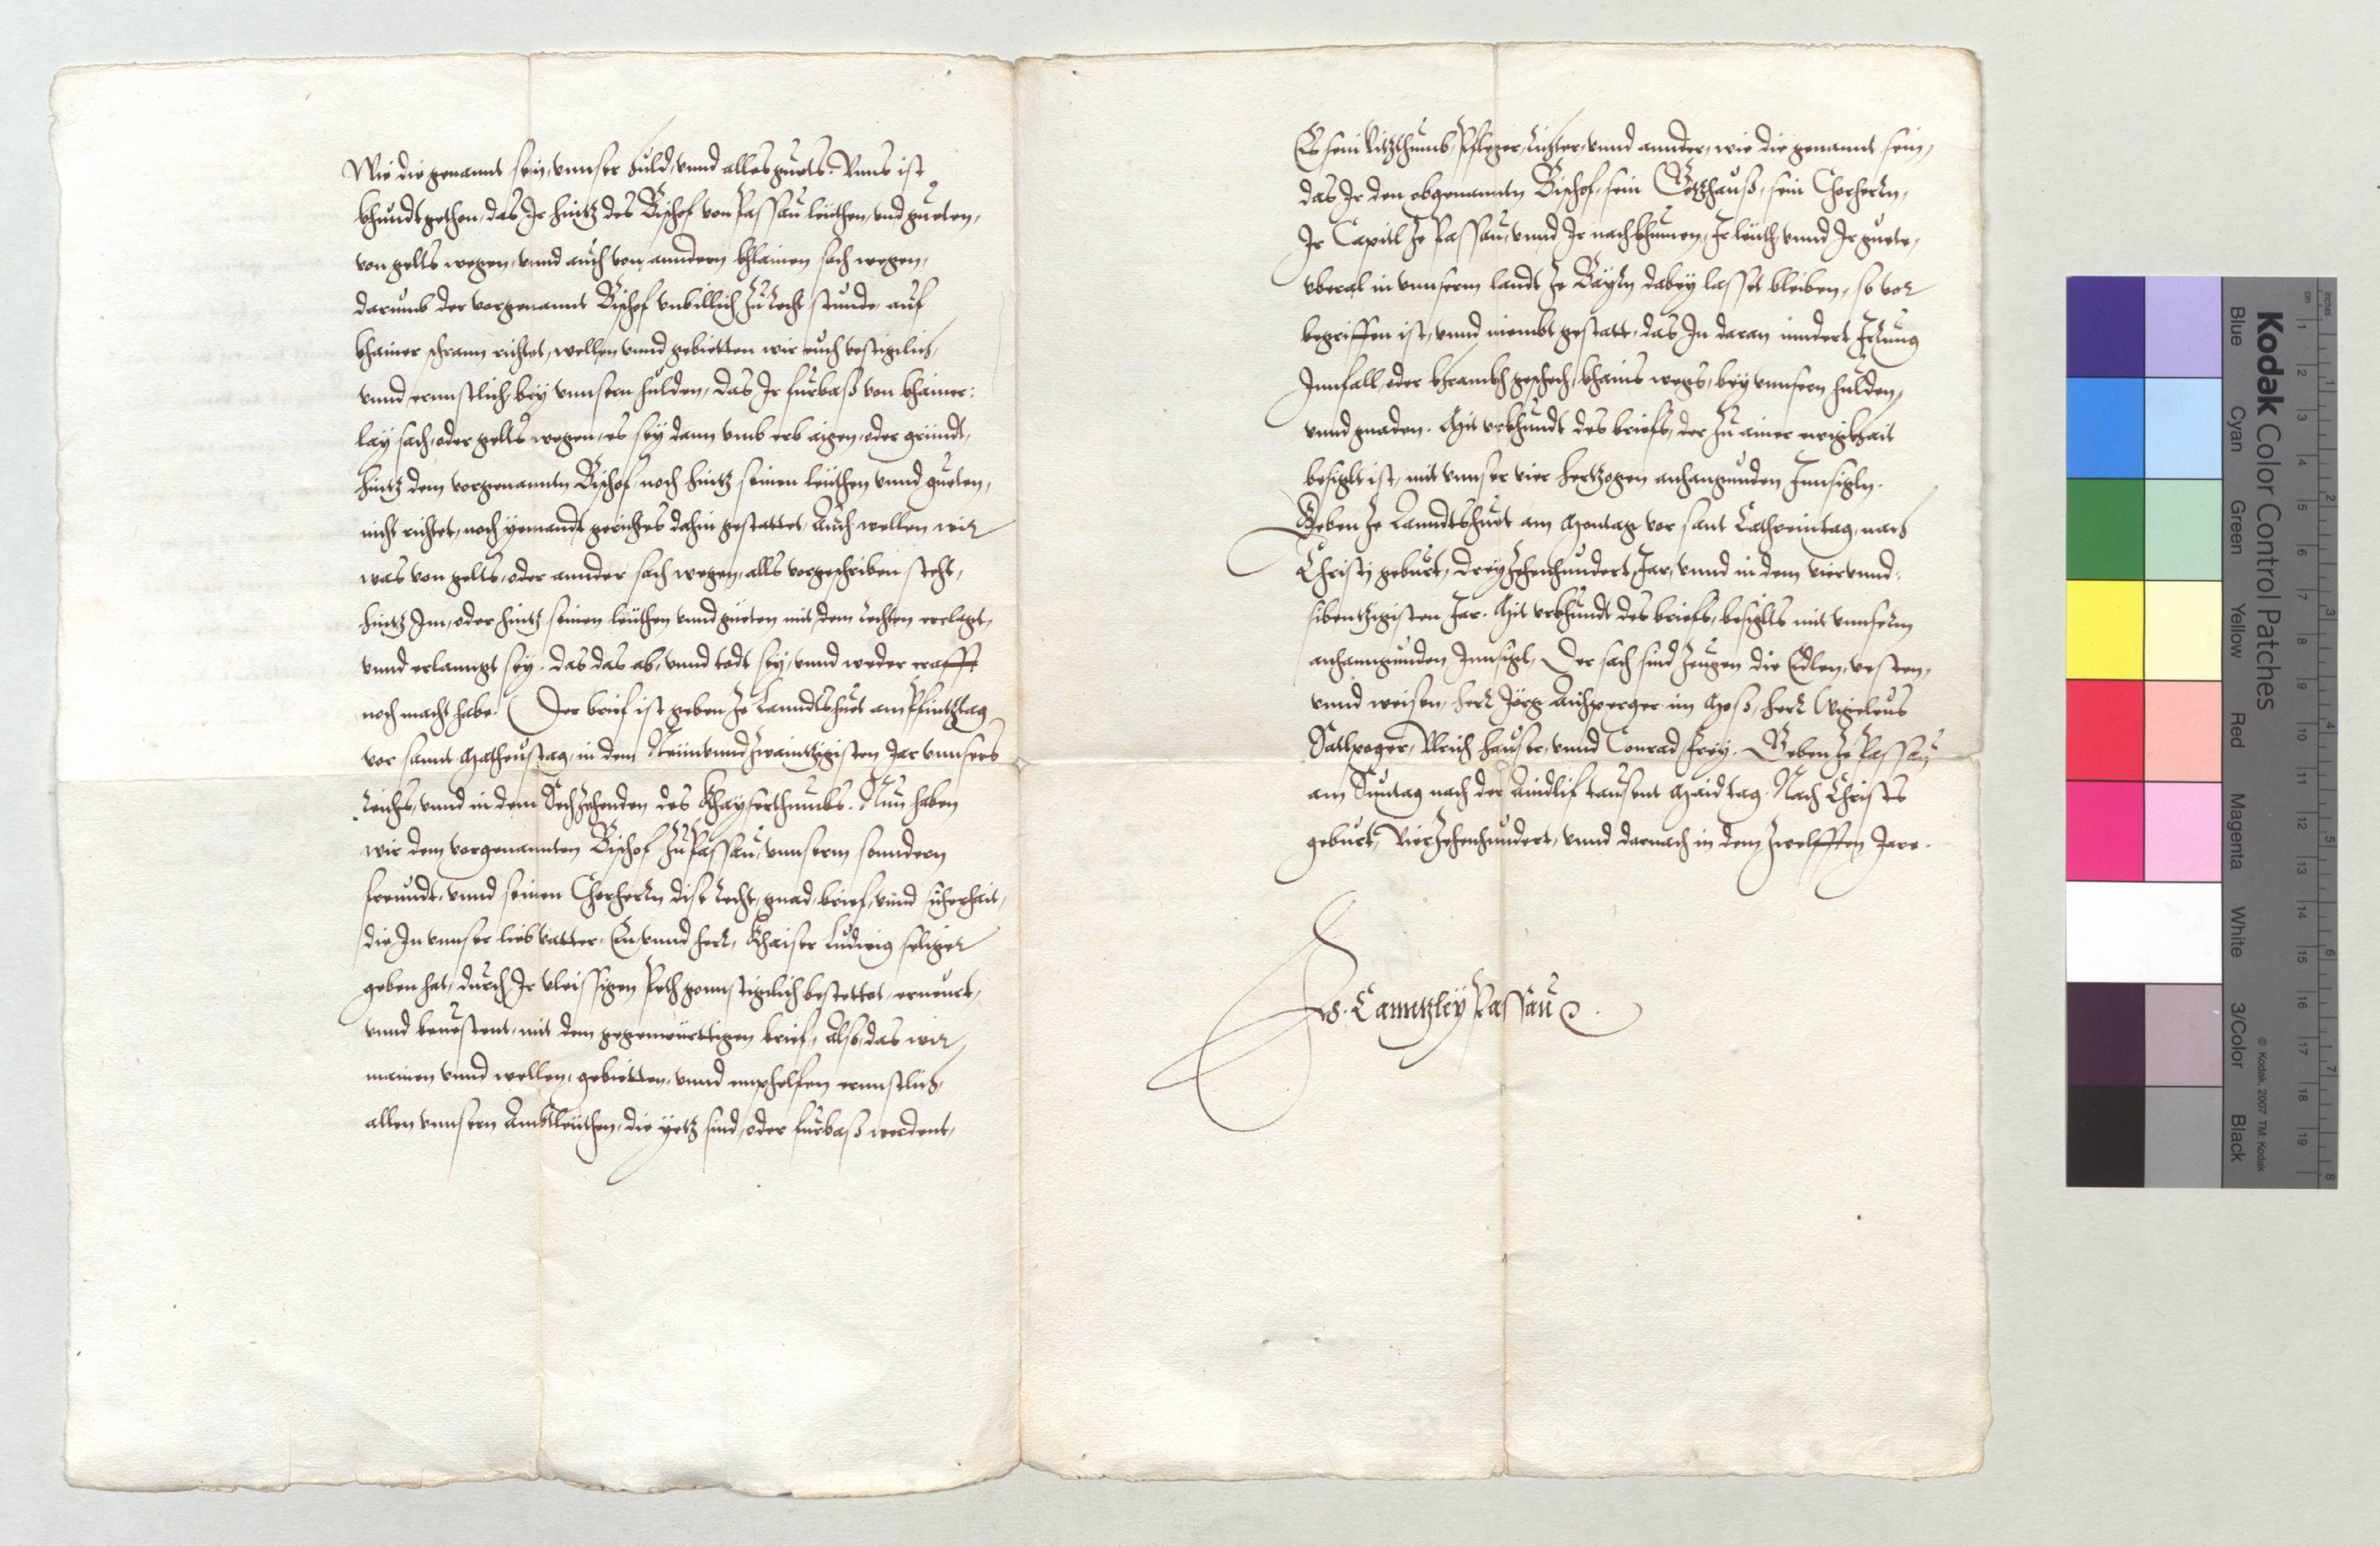 Wie die genannt sein, vnnser huld, vnnd alles guets. Vnns ist
khundt gethon, das Ir hintz des Bischof von Passau leuthen, vnd gueten,
von gellts wegen, vnnd auch von anndern khlainen sach wegen,
darumb der vorgenannt Bischof vnbillich zu Recht stunde, auf
khainer schrann richtet, wellen vnnd gebietten wir euch vestigclich,
vnnd ernnstlich bey vnnsern hulden, das Ir furbaß von khainer:
lay sach, oder gellts wegen, es sey dann vmb erb aigen, oder gründt,
hintz dem vorgenannten Bischof, noch hintz seinen leuthen vnnd gueten,
nicht richtet, noch yemandt gerichtes dahin gestattet, Auch wellen wir
was von gellts, oder annder sach wegen, alls vorgeschriben steht,
hintz Im, oder hintz seinen leuthen vnnd gueten mit dem Rechten erclagt,
vnnd erlanngt sey. das das ab, vnnd todt sey, vnnd weder crafft
noch macht habe. Der brief ist geben ze Lanndtshuet am Pfintztag
vor sannt Matheustag, in dem Neunvnndzwaintzigisten Jar vnnsers
Reichs, vnnd in dem Sechzehenden des Khayserthumbs. Nun haben
wir dem vorgenannten Bischof zu Passau, vnnserm sonndern
freundt, vnnd seinen Chorherrn dise Recht, gnad, brief, vnnd sicherhait,
die In vnnser lieb vatter, En, vnnd herr, Khaiser Ludwig seliger
geben hat, durch Ir vleissigen Peth gonnstigclich bestettet, erneurt,
vnnd beuestent, mit dem gegenwurttigen brief, Also, das wir
mainen vnnd wellen, gebietten, vnnd emphelhen ernnstlich,
allen vnnsern Ambtleuthen, die yetz sind, oder furbaß werdent,
Es sein Vitzthumb, Pfleger, Richter, vnnd annder, wie die genannt sein,
das Ir den obgenannten Bischof, sein Gotzhauß, sein Chorherrn,
Ir Capitl ze Passau, vnnd Ir nachkhumen, Ir leuth, vnnd Ir guete,
vberal in vnnserm landt ze Bayrn dabey lasset bleiben, so vor
begriffen ist, vnnd niembt gestatt, das In daran inndert Irrung
Innfall, oder khrankh geschech, khains wegs, bey vnnsern hulden,
vnnd gnaden. Mit vrkhundt des briefs, der zu ainer ewigkhait
besiglt ist, mit vnnser vier Hertzogen anhangunden Innsigln.
Geben ze Lanndtshuet am Montag vor sant Cathreintag, nach
Christj geburt, dreyzehenhundert Jar, vnnd in dem viervnnd:
sibentzigisten Jar. Mit vrkhundt des briefs, besiglts mit vnnserm
anhanngunden Innsigl, Der sach sind zeugen die Edlen, vesten,
vnnd weisen, herr Jörg Aichperger im Moß, herr Wigeleus
Satlpoger, Vlrich hauser, vnnd Conrad Frey. Geben ze Passau
am Suntag nach der Aindlif tausent Maid tag. Nach Christs
geburt, Vierzehenhundert, vnnd darnach in dem zwelfften Jare.
Canntzley Passau
Kodak Color Control Patches
Blue Cyan Green Yellow Red Magenta White 3/Color Black
© Kodak, 2007 TM: Kodak
cm 1 2 3 4 5 6 7 8 9 10 11 12 13 14 15 16 17 18 19
inches 1 2 3 4 5 6 7 8